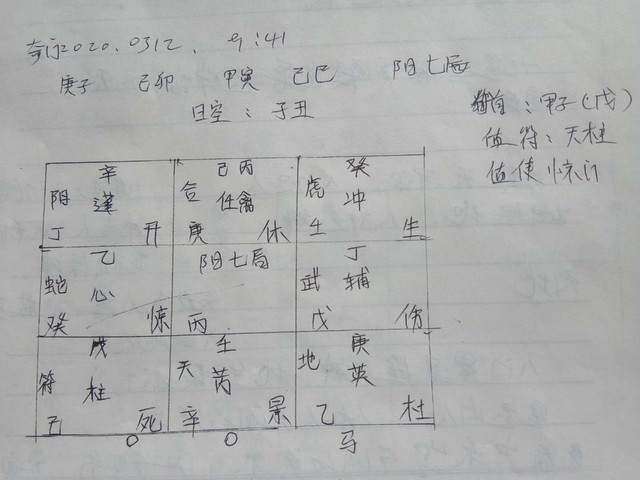 奇门2020.0312. 9:41
庚子 己卯 甲寅 己巳 阳七局
日空:子丑
旬首:甲子(戊)
值符:天柱
值使 惊门
辛
阴 蓬
丁 开
己丙
合 任禽
庚 休
癸
虎 冲
壬 生
乙
蛇 心
癸 惊
阳七局
丙
丁
武 辅
戊 伤
戊
符 柱
己 死
壬
天 芮
辛 景
庚
地 英
乙 杜
O O 马